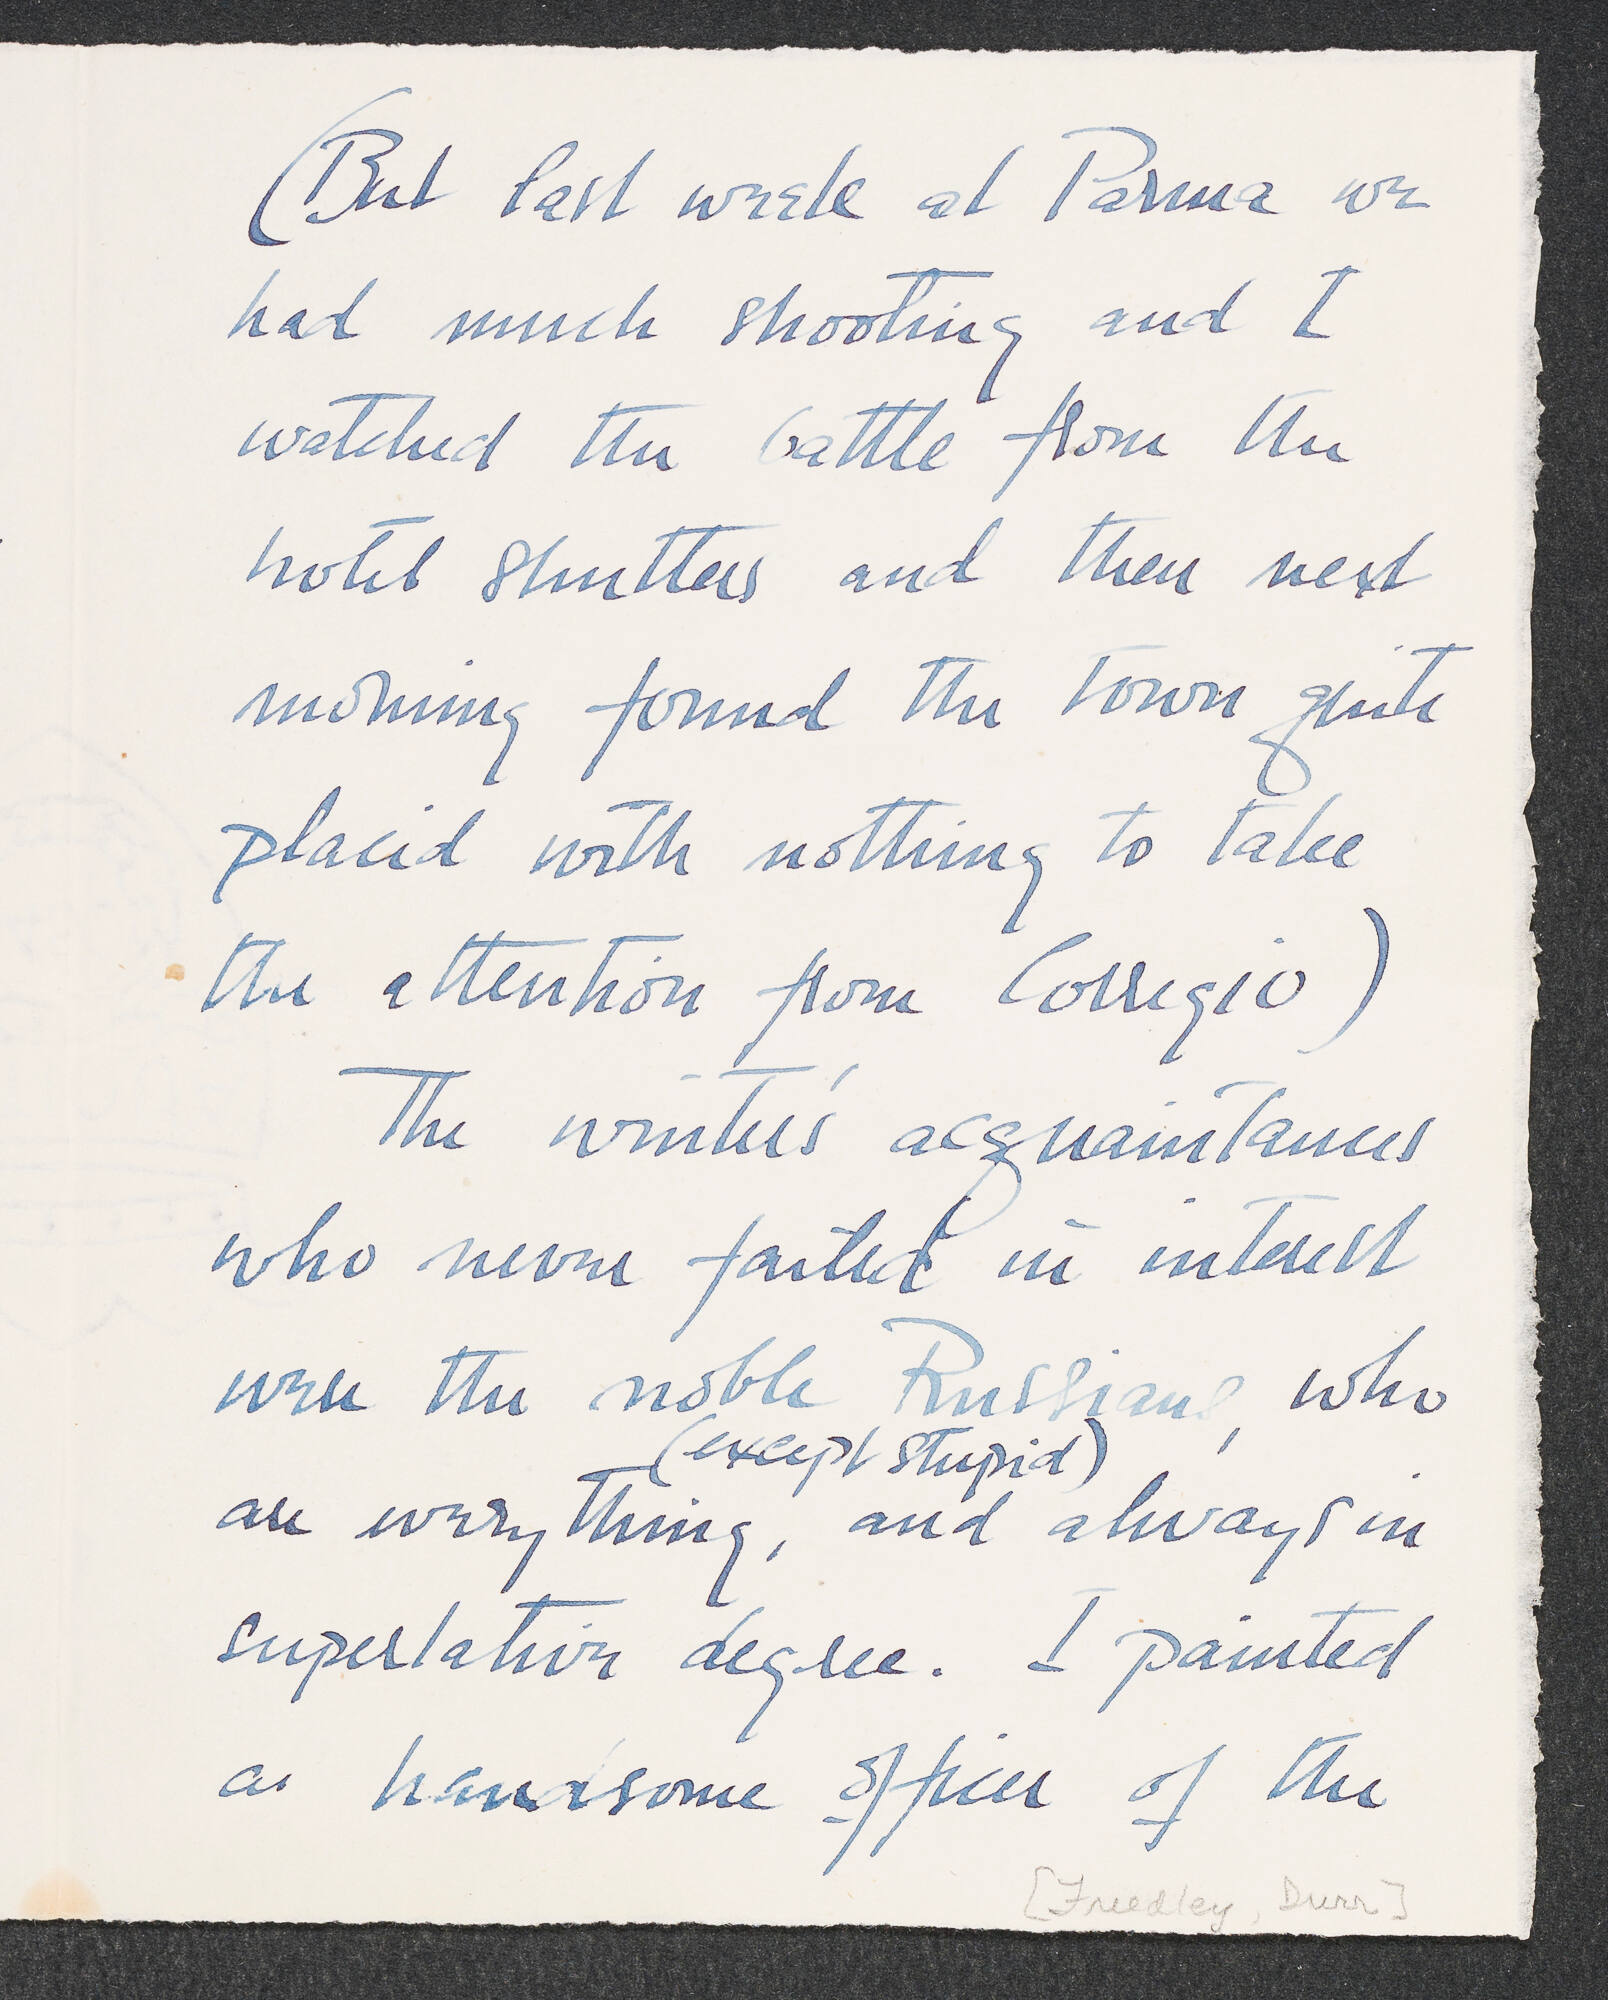 (But last week at Parma we
had much shooting and I
watched the battle from the
hotel shutters and then next
morning found the town quite
placid with nothing to take
the attention from Corregio)
The winter's acquaintances
who never failed in interest
were the noble Russians, who
(except stupid)
are everything, and always in
superlative degree. I painted
a handsome officer of the
[Freedley, Durr]